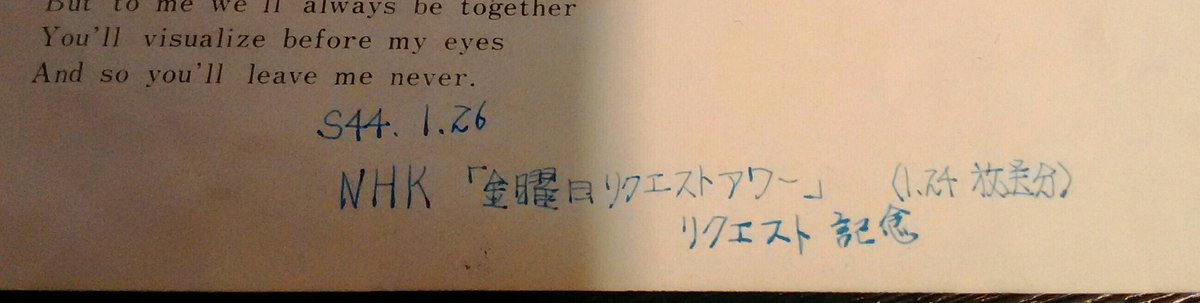 But to me we'll always be together
You'll visualize before my eyes
And so you'll leave me never.
S44.1.26
NHK「金曜日リクエストアワー」 (1.24 放送分)
リクエスト 記念